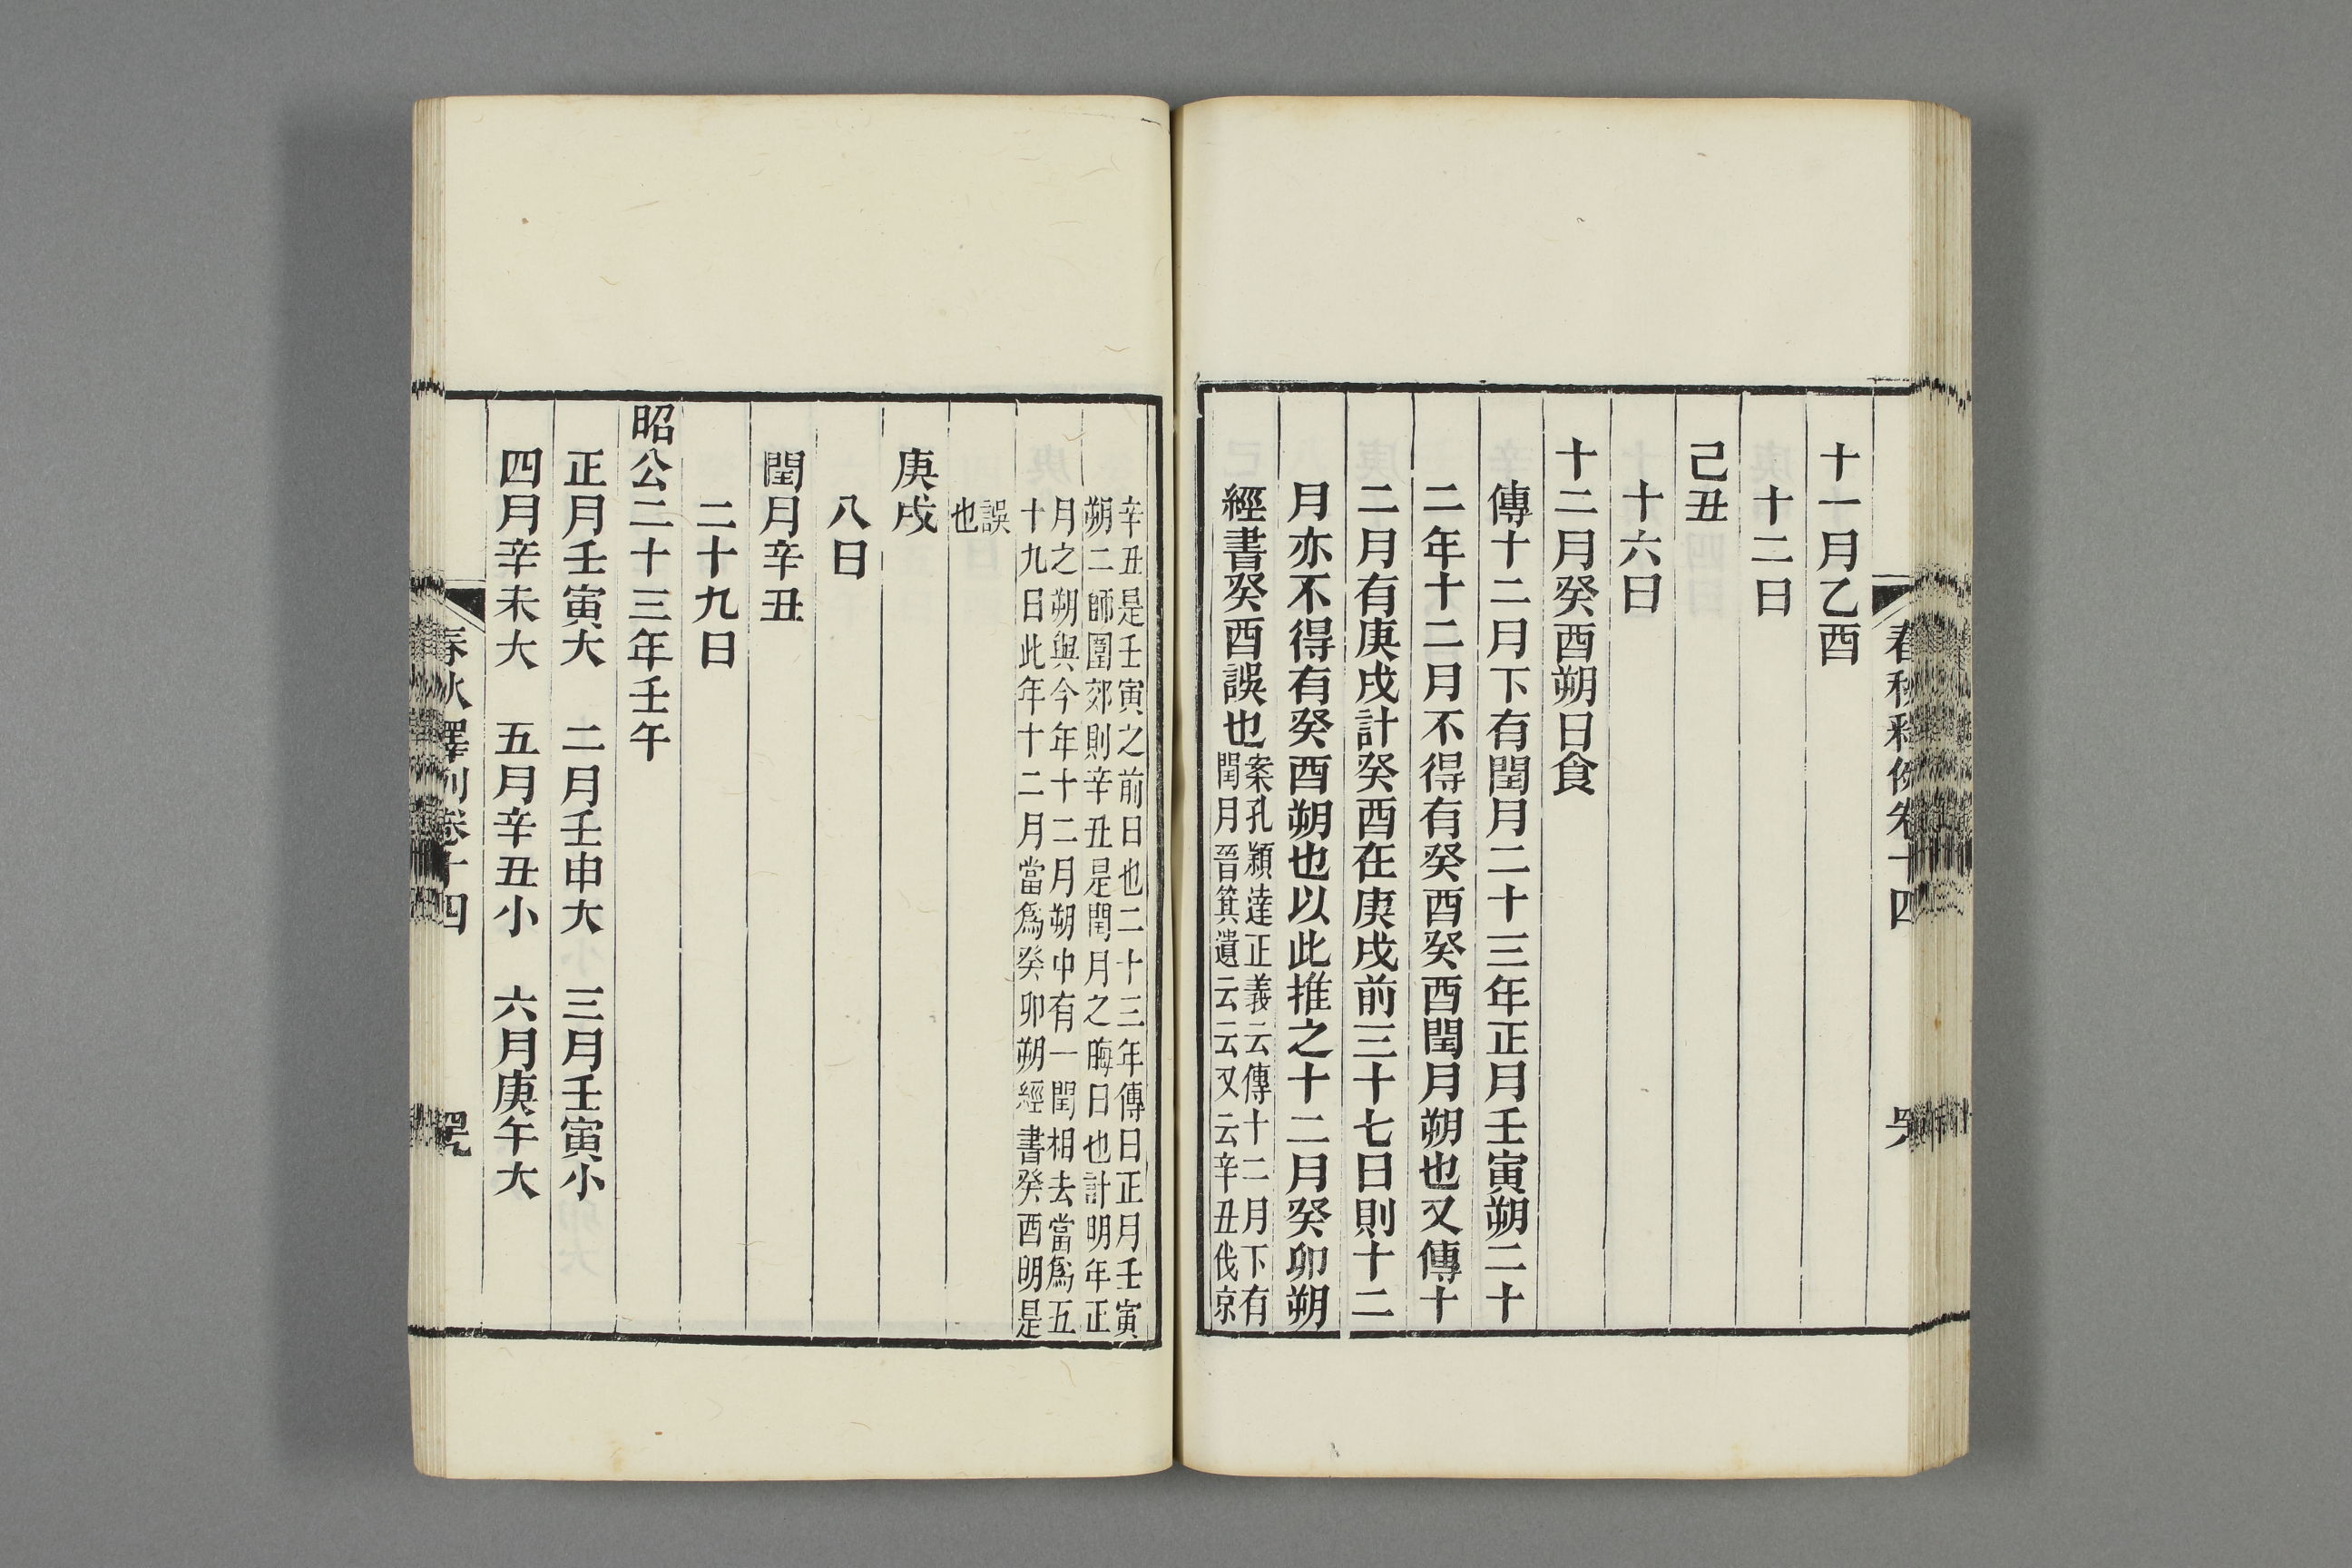 十一月乙酉
十二日
己丑
十六日
十二月癸酉朔日食
傳十二月下有閏月二十三年正月壬寅朔二十
二年十二月不得有癸酉癸酉閏月朔也又傳十
二月有庚戌計癸酉在庚戌前三十七日則十二
月亦不得有癸酉朔也以此推之十二月癸卯朔
經書癸酉誤也案孔穎達正義云傳十二月下有
閏月晉箕遺云云又云辛丑伐京
辛丑是壬寅之前日也二十三年傳曰正月壬寅
朔二師圍郊則辛丑是閏月之晦日也計明年正
月之朔與今年十二月朔中有一閏相去當爲五
十九日此年十二月當爲癸卯朔經書癸酉明是
誤
也
庚戌
八日
閏月辛丑
二十九日
昭公二十三年壬午
正月壬寅大 二月壬申大 三月壬寅小
四月辛未大 五月辛丑小 六月庚午大
春秋釋例卷十四